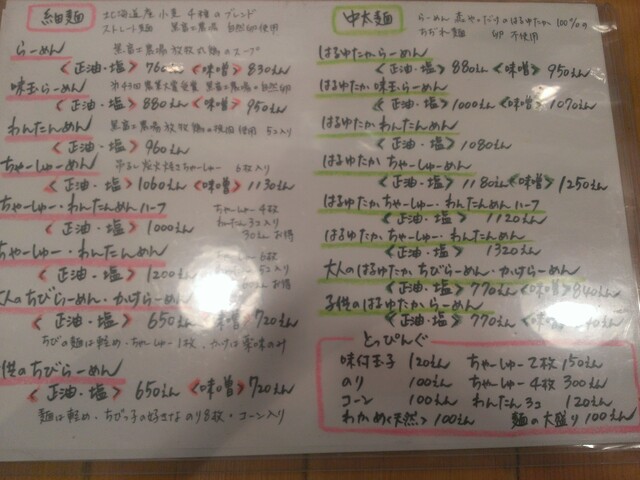 細麺 北海道産小麦4種のブレンド
ストレート麺 黒富士農場 自然卵使用
らーめん 黒富士農場放牧鶏のスープ
<正油・塩> 760えん <味噌> 830えん
味玉らーめん 黒富士農場の自然卵
<正油・塩> 880えん <味噌> 950えん
わんたんめん 黒富士農場放牧鶏の使用 5コ入り
<正油・塩> 960えん
ちゃーしゅーめん 吊るし炭火焼きちゃーしゅー 6枚入り
<正油・塩> 1060えん <味噌> 1130えん
ちゃーしゅー・わんたんめんハーフ ちゃーしゅー4枚
わんたん3コ入り
<正油・塩> 1000えん 30えんお得
ちゃーしゅー・わんたんめん ちゃーしゅー6枚
わんたん5コ入り
<正油・塩> 1200えん えんお得
大人のちびらーめん・かけらーめん
<正油・塩> 650えん <味噌> 720えん
ちびの麺は軽め、ちゃーしゅー1枚、かけは薬味のみ
子供のちびらーめん
<正油・塩> 650えん <味噌> 720えん
麺は軽め、ちびっ子の好きなのり8枚・コーン入り
中太麺 らーめん 赤やったりのはるゆたか100%の
ちぢれ麺 卵不使用
はるゆたからーめん
<正油・塩> 880えん <味噌> 950えん
はるゆたか味玉らーめん
<正油・塩> 1000えん <味噌> 1070えん
はるゆたかわんたんめん
<正油・塩> 1080えん
はるゆたかちゃーしゅーめん
<正油・塩> 1180えん <味噌> 1250えん
はるゆたかちゃーしゅー・わんたんめんハーフ
<正油・塩> 1120えん
はるゆたかちゃーしゅー・わんたんめん
<正油・塩> 1320えん
大人のはるゆたかちびらーめん・かけらーめん
<正油・塩> 770えん <味噌> 840えん
子供のはるゆたからーめん
<正油・塩> 770えん <味噌> 40えん
とっぴんぐ
味付玉子 120えん ちゃーしゅー2枚 150えん
のり 100えん ちゃーしゅー4枚 300えん
コーン 100えん わんたん3コ 120えん
わかめ<天然> 100えん 麺の大盛り 100えん